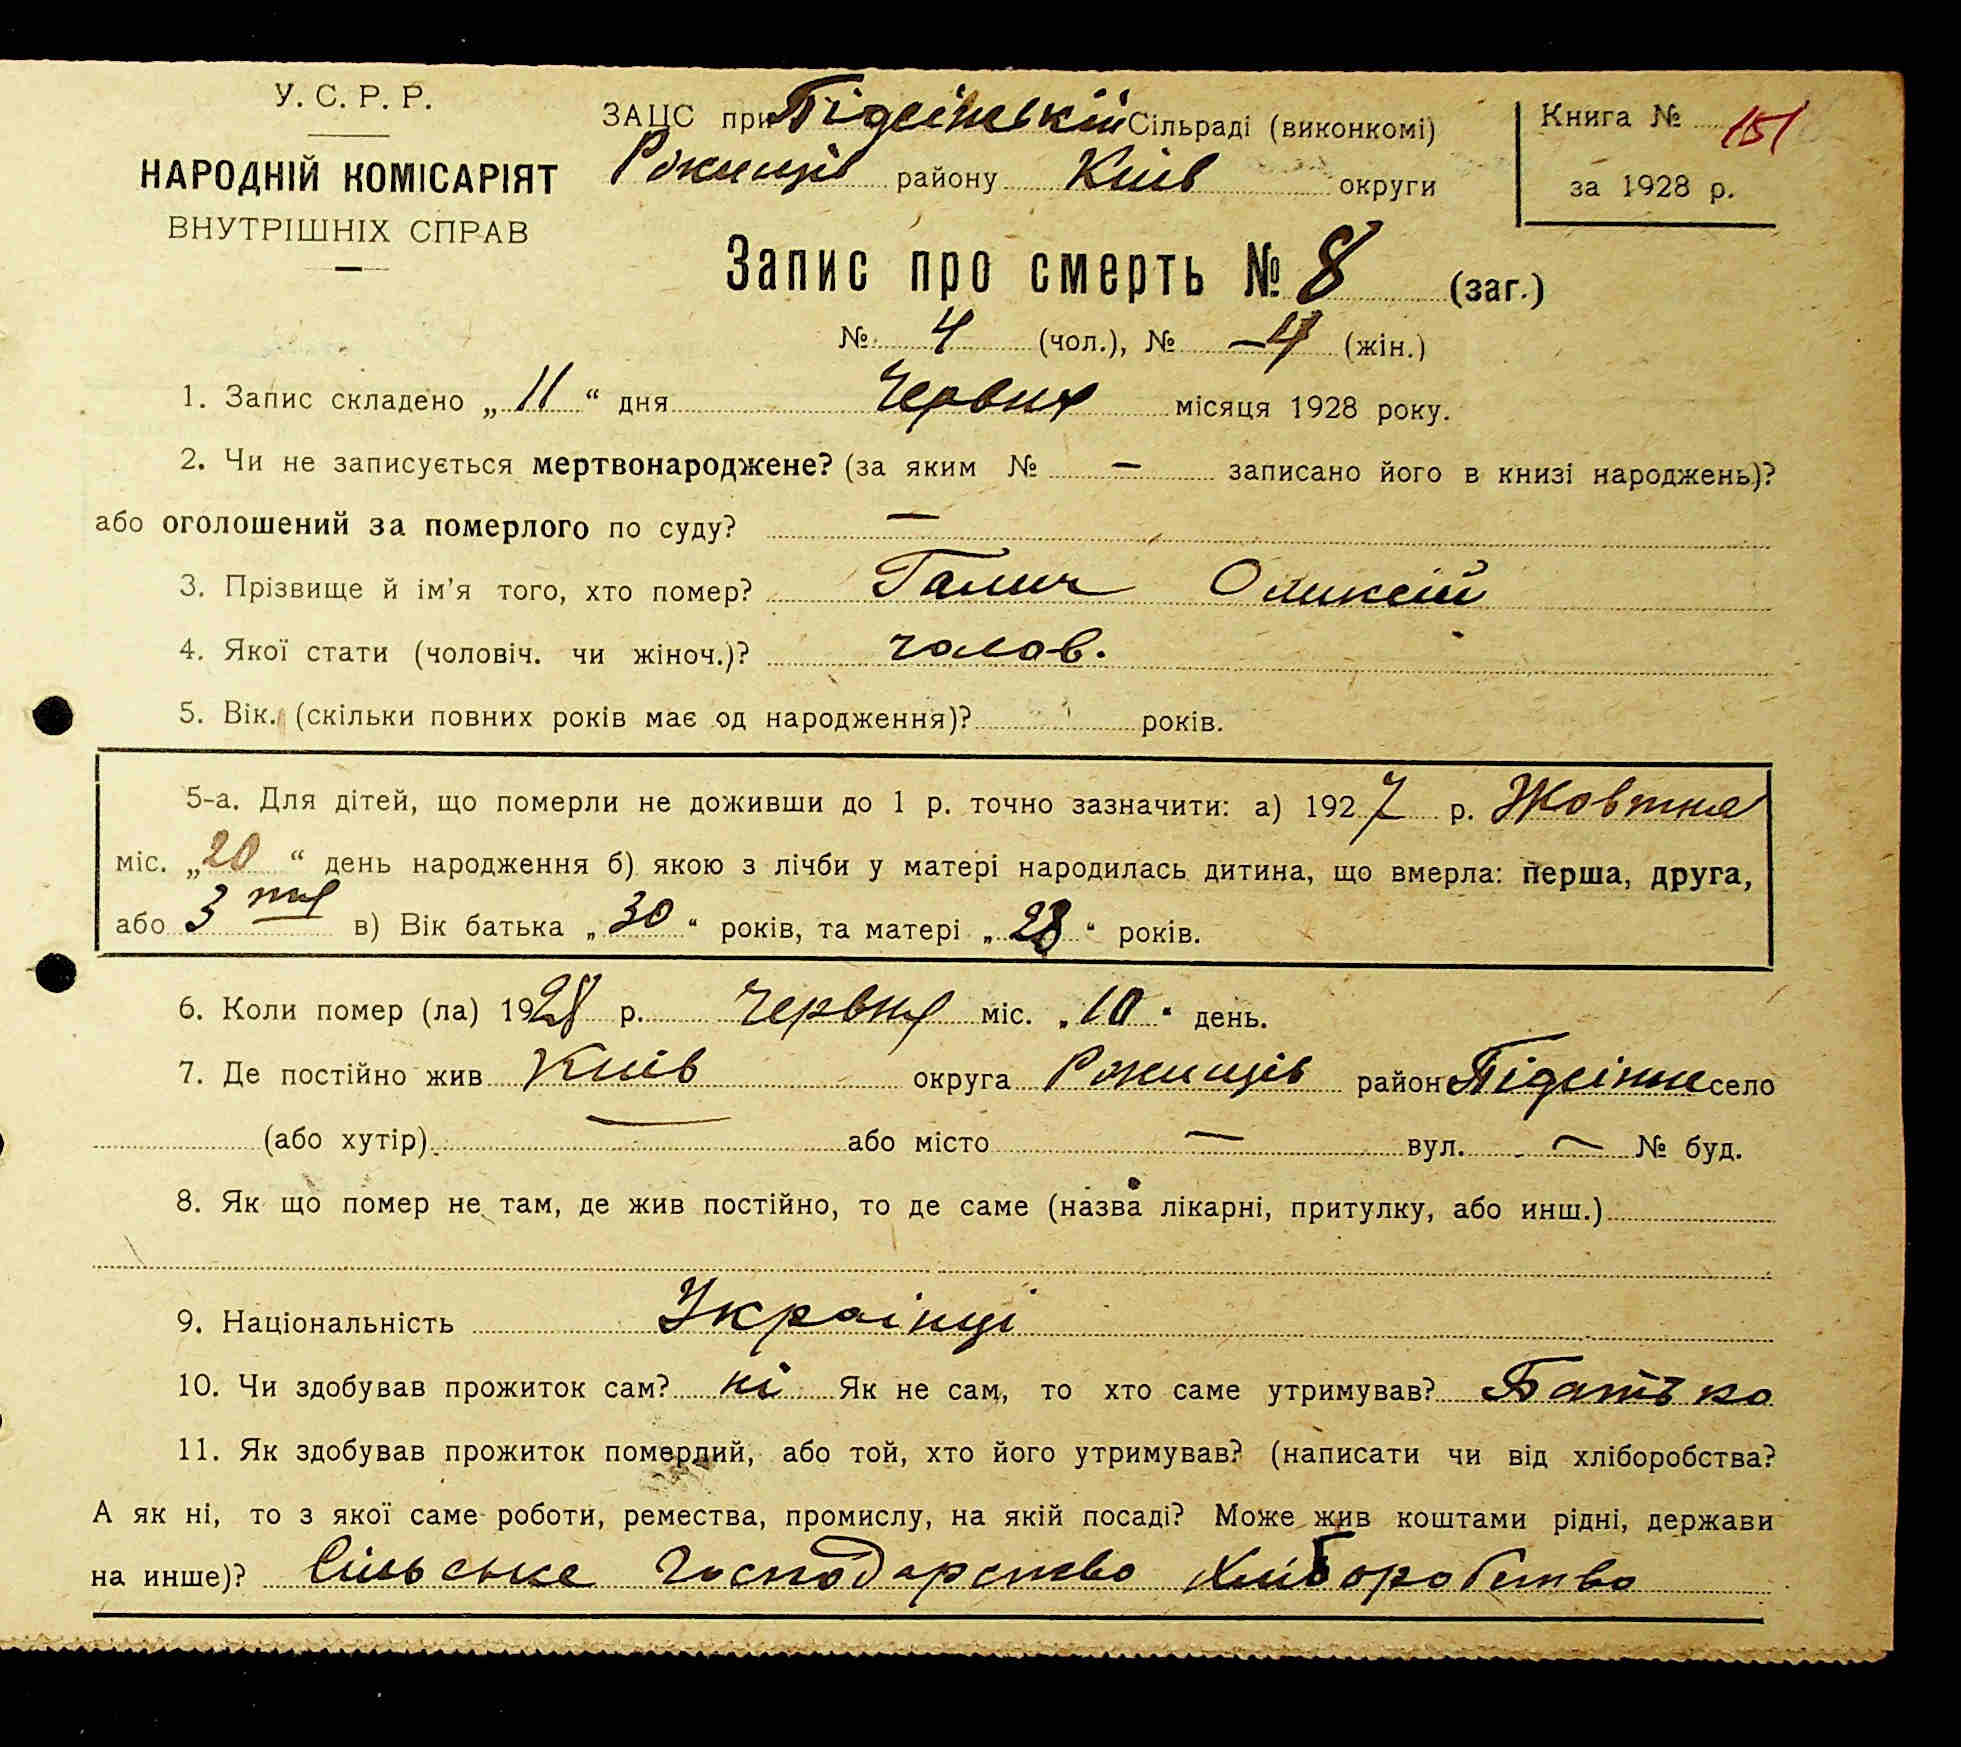 У. С. Р. Р.
НАРОДНІЙ КОМІСАРІЯТ
ВНУТРІШНІХ СПРАВ
ЗАЦС при Підсінській Сільраді (виконкомі)
Рокищів району Київ округи
Книга № 151
за 1928 р.
Запис про смерть № 8 (заг.)
№ 4 (чол.), № – 4 (жін.)
1. Запис складено „ 11 “ дня Червня місяця 1928 року.
2. Чи не записується мертвонароджене? (за яким № — записано його в книзі народжень)?
або оголошений за померлого по суду? —
3. Прізвище й ім'я того, хто помер? Галич Оликсій
4. Якої стати (чоловіч. чи жіноч.)? чолов.
5. Вік. (скільки повних років має од народження)? років.
5-а. Для дітей, що померли не доживши до 1 р. точно зазначити: а) 1927 р. Жовтня
міс. „ 20 “ день народження б) якою з лічби у матері народилась дитина, що вмерла: перша, друга,
або 3 тя в) Вік батька „ 30 “ років, та матері „ 28 “ років.
6. Коли помер (ла) 1928 р. Червня міс. „ 10 “ день.
7. Де постійно жив Київ округа Рокищів район Підсінне село
(або хутір) — або місто — вул. — № буд.
8. Як що помер не там, де жив постійно, то де саме (назва лікарні, притулку, або инш.)
9. Національність Українці
10. Чи здобував прожиток сам? ні Як не сам, то хто саме утримував? Батько
11. Як здобував прожиток померлий, або той, хто його утримував? (написати чи від хліборобства?
А як ні, то з якої саме роботи, ремества, промислу, на якій посаді? Може жив коштами рідні, держави
на инше)? Сільське господарство хліборобство